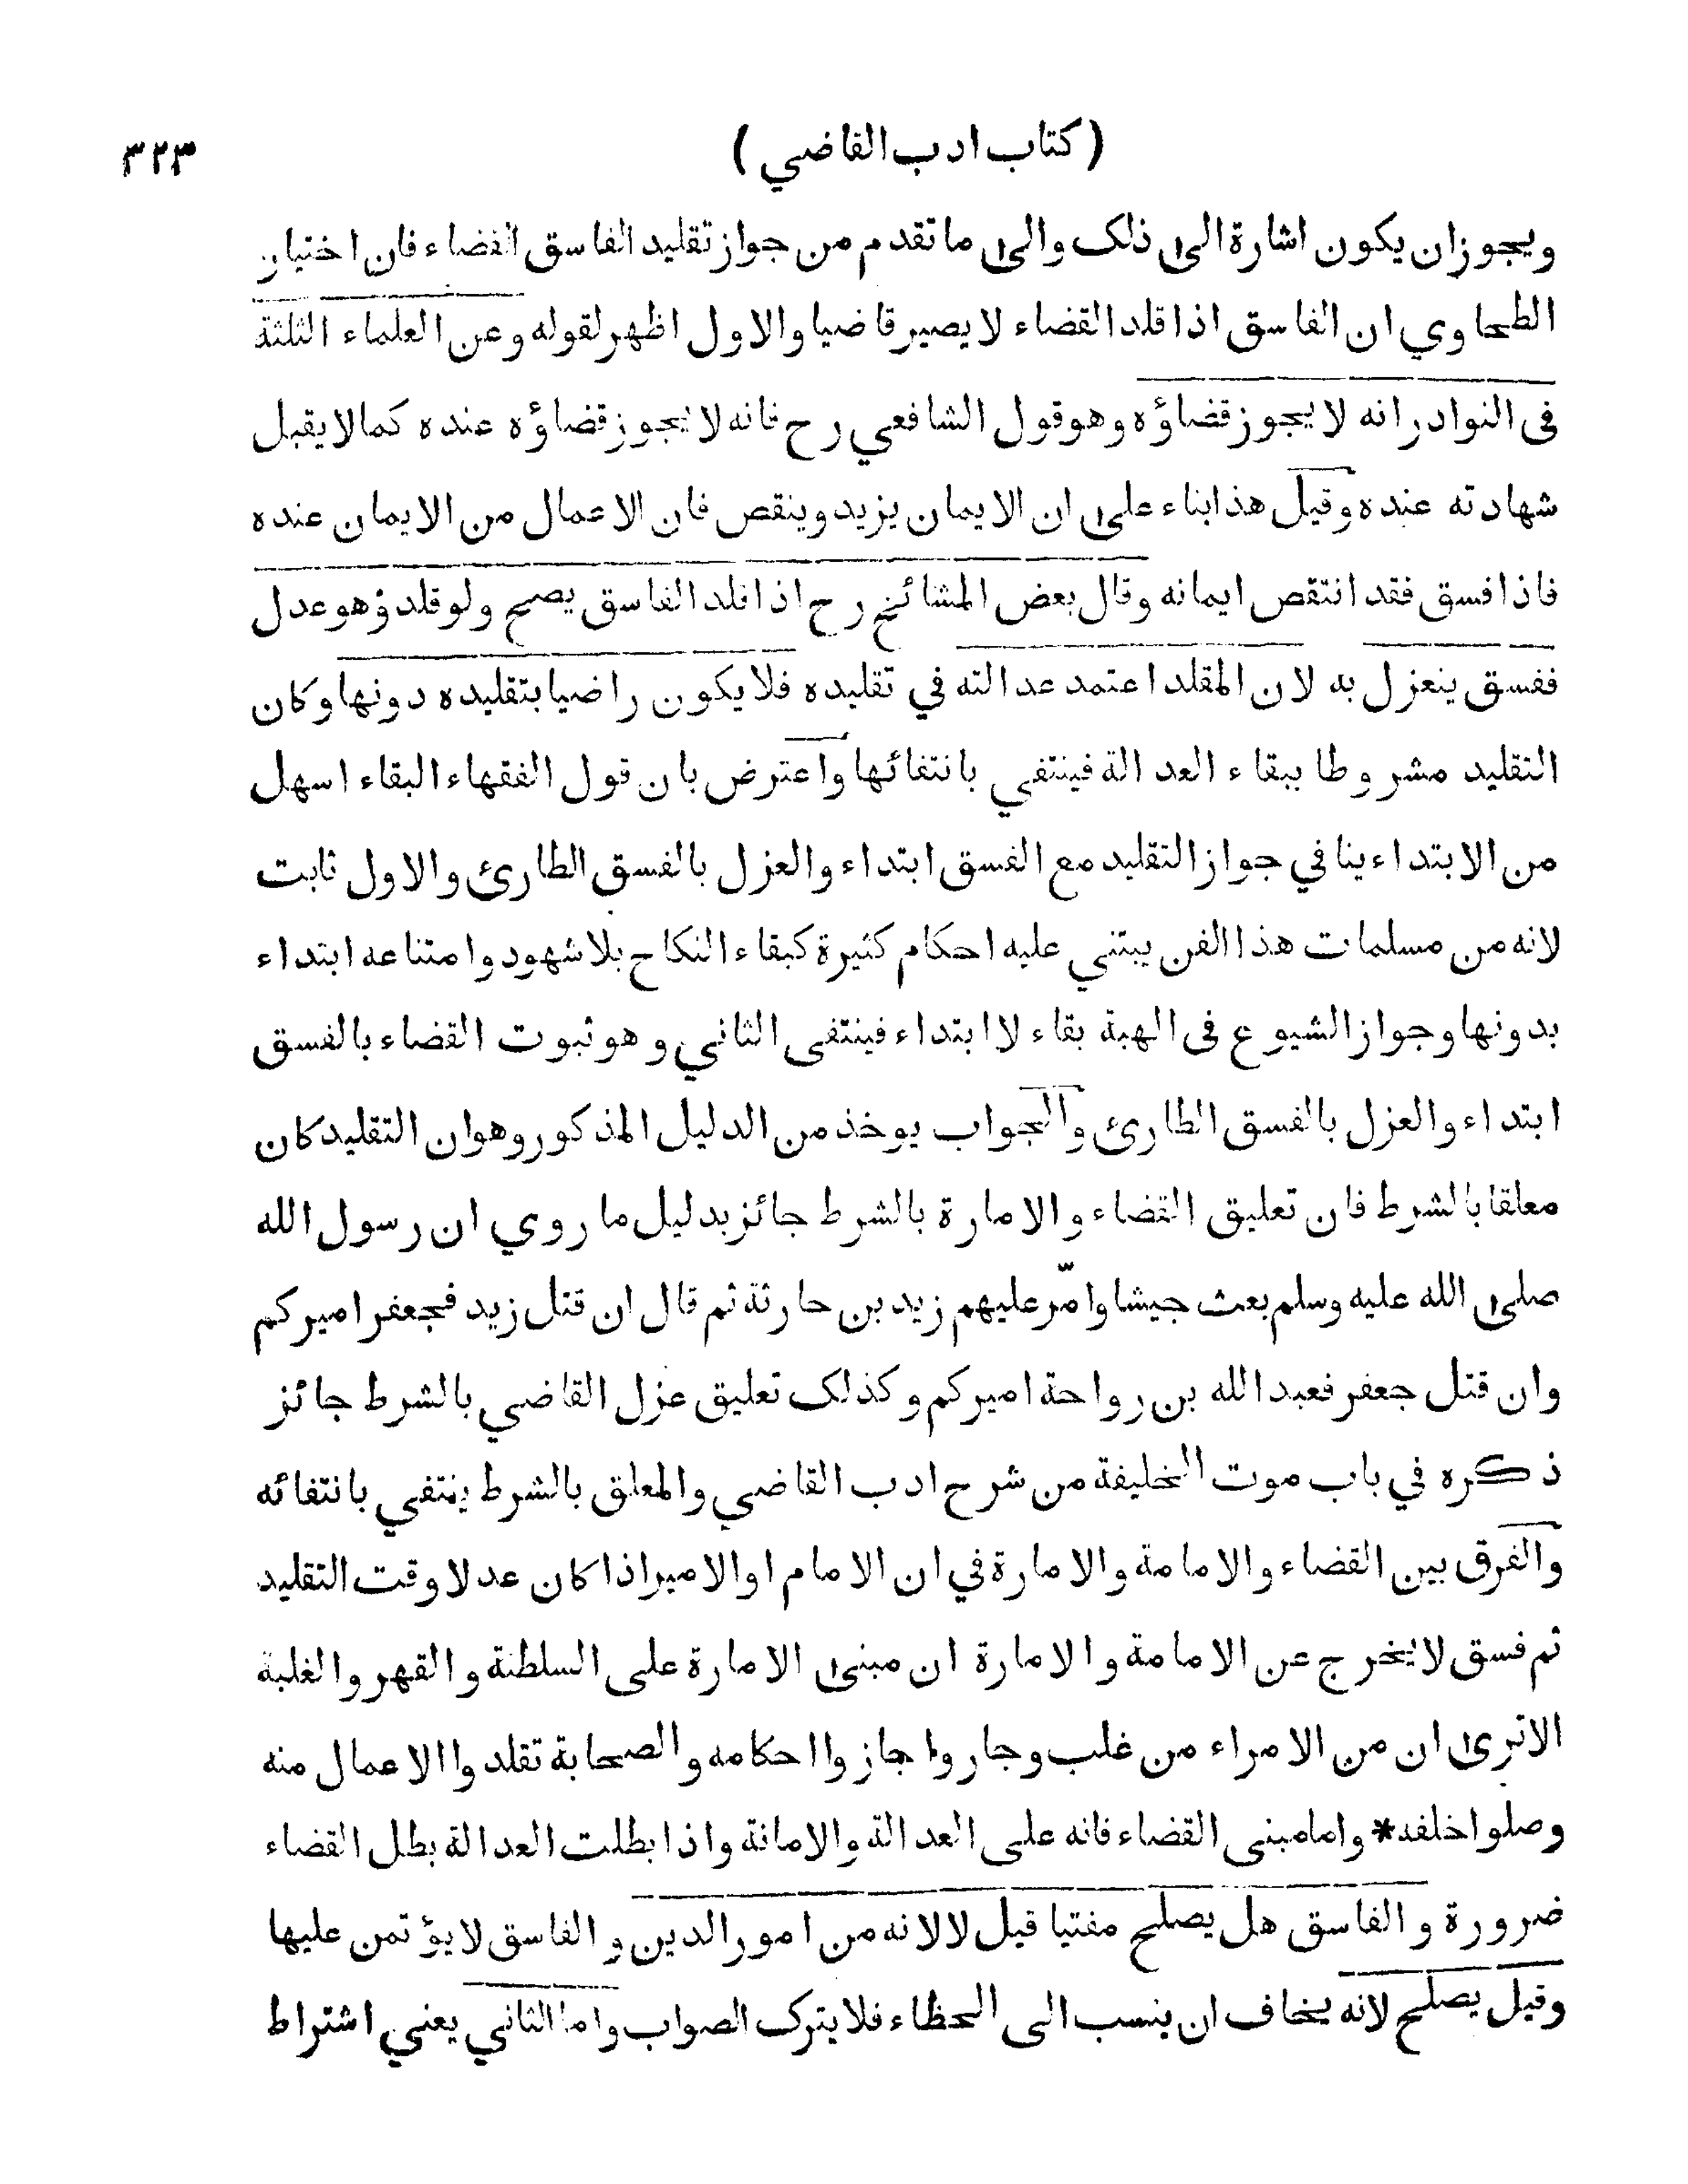 (كتاب ادب القاضي) ٣٢٣
ويجوز ان يكون اشارة الى ذلك والى ما تقدم من جواز تقليد الفاسق القضاء فان اختيار
الطحاوي ان الفاسق اذا قلد القضاء لا يصير قاضيا والاول اظهر لقوله وعن العلماء الثلثة
فى النوادر انه لا يجوز قضاؤه وهو قول الشافعي رح فانه لا يجوز قضاؤه عنده كما لا يقبل
شهادته عنده وقيل هذا بناء على ان الايمان يزيد وينقص فان الاعمال من الايمان عنده
فاذا فسق فقد انتقص ايمانه وقال بعض المشائخ رح اذا قلد الفاسق يصح ولو قلد وهو عدل
ففسق ينعزل به لان المقلد اعتمد عدالته في تقليده فلا يكون راضيا بتقليده دونها وكان
التقليد مشروطا ببقاء العدالة فينتفي بانتفائها واعترض بان قول الفقهاء البقاء اسهل
من الابتداء ينافي جواز التقليد مع الفسق ابتداء والعزل بالفسق الطارئ والاول ثابت
لانه من مسلمات هذا الفن يبتني عليه احكام كثيرة كبقاء النكاح بلا شهود وامتناعه ابتداء
بدونها وجواز الشيوع فى الهبة بقاء لا ابتداء فينتفى الثاني وهو ثبوت القضاء بالفسق
ابتداء والعزل بالفسق الطارئ والجواب يوخذ من الدليل المذكور وهو ان التقليد كان
معلقا بالشرط فان تعليق القضاء والامارة بالشرط جائز بدليل ما روي ان رسول الله
صلى الله عليه وسلم بعث جيشا وامّر عليهم زيد بن حارثة ثم قال ان قتل زيد فجعفر اميركم
وان قتل جعفر فعبد الله بن رواحة اميركم وكذلك تعليق عزل القاضي بالشرط جائز
ذكره في باب موت الخليفة من شرح ادب القاضي والمعلق بالشرط ينتفي بانتفائه
والفرق بين القضاء والامامة والامارة في ان الامام او الامير اذا كان عدلا وقت التقليد
ثم فسق لا يخرج عن الامامة والامارة ان مبنى الامارة على السلطنة والقهر والغلبة
الا ترى ان من الامراء من غلب وجار واجازوا احكامه والصحابة تقلدوا الاعمال منه
وصلوا خلفه* واما مبنى القضاء فانه على العدالة والامانة واذا بطلت العدالة بطل القضاء
ضرورة والفاسق هل يصلح مفتيا قيل لا لانه من امور الدين والفاسق لا يؤتمن عليها
وقيل يصلح لانه يخاف ان ينسب الى الخطاء فلا يترك الصواب واما الثاني يعني اشتراط